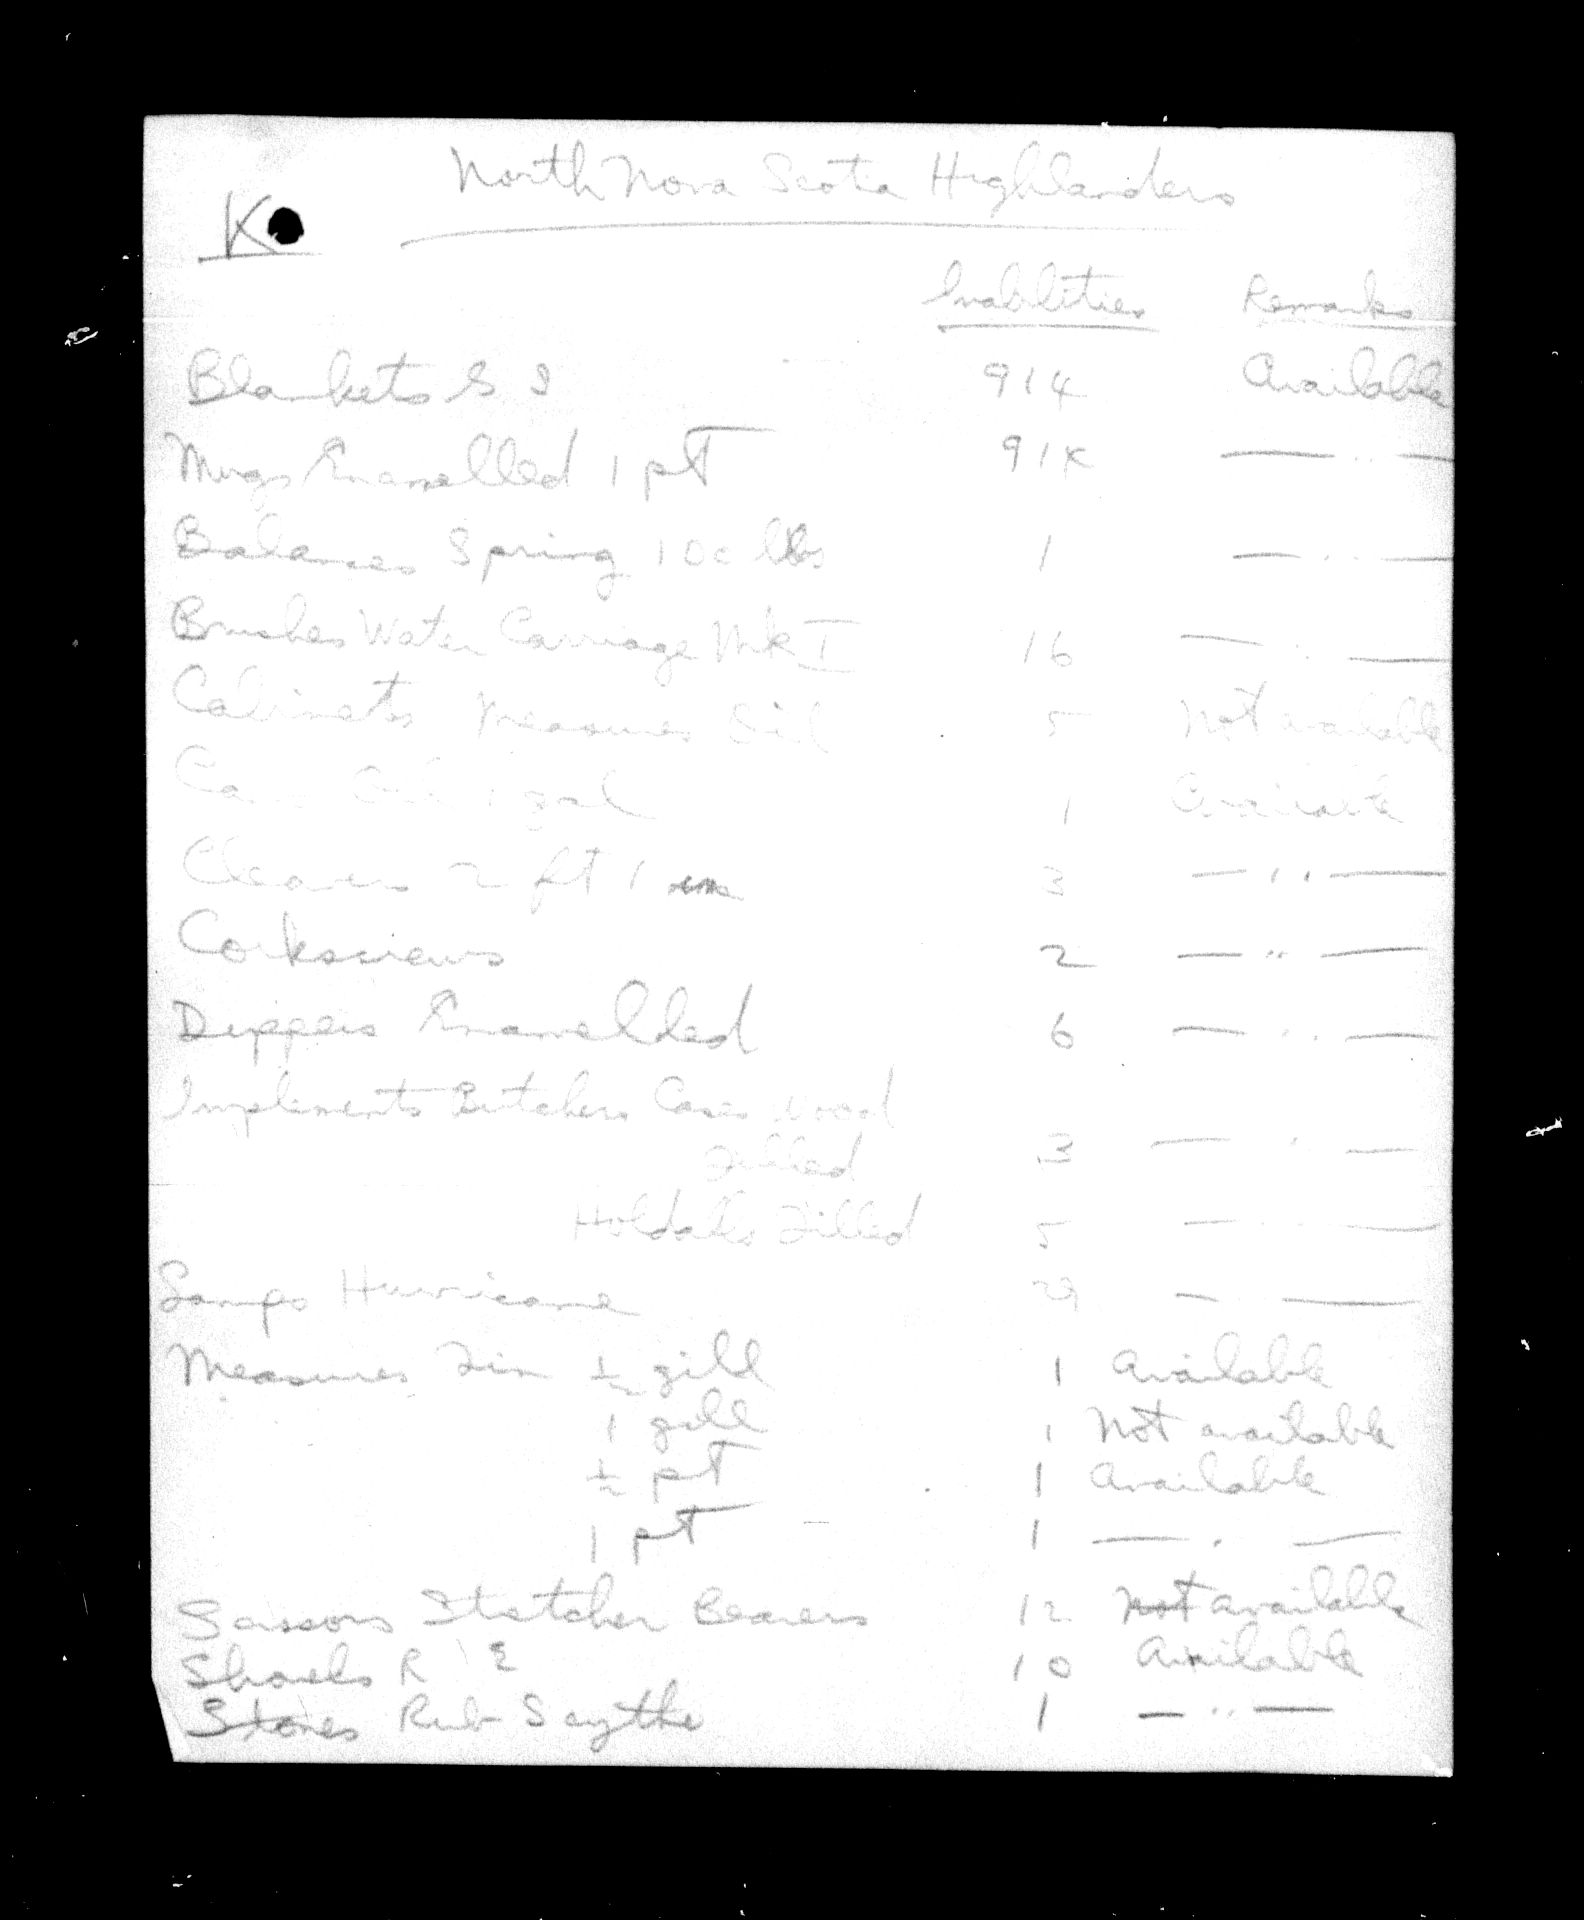 North Nova Scotia Highlanders
K
liabilities Remarks
Blankets G S 914 Available
Mugs Enamelled 1 pt 914 — " —
Balances Spring 100 lbs 1 — " —
Brushes Water Carriage Mk I 16 — " —
Cabinets Measures 5 Not available
Cans Oil 1 gal 1 Available
Cleavers 2 ft 1 3 — " —
Corkscrews 2 — " —
Dippers Enamelled 6 — " —
Implements Butchers Cases wood
Filled 3 — " —
Holdalls Filled 5 — " —
Lamps Hurricane 29 — —
Measures Tin ½ gill 1 Available
1 gill 1 Not available
½ pt 1 Available
1 pt 1 — " —
Scissors Stretcher Bearers 12 Not available
Shovels R E 10 Available
Stones Rub Scythe 1 — " —